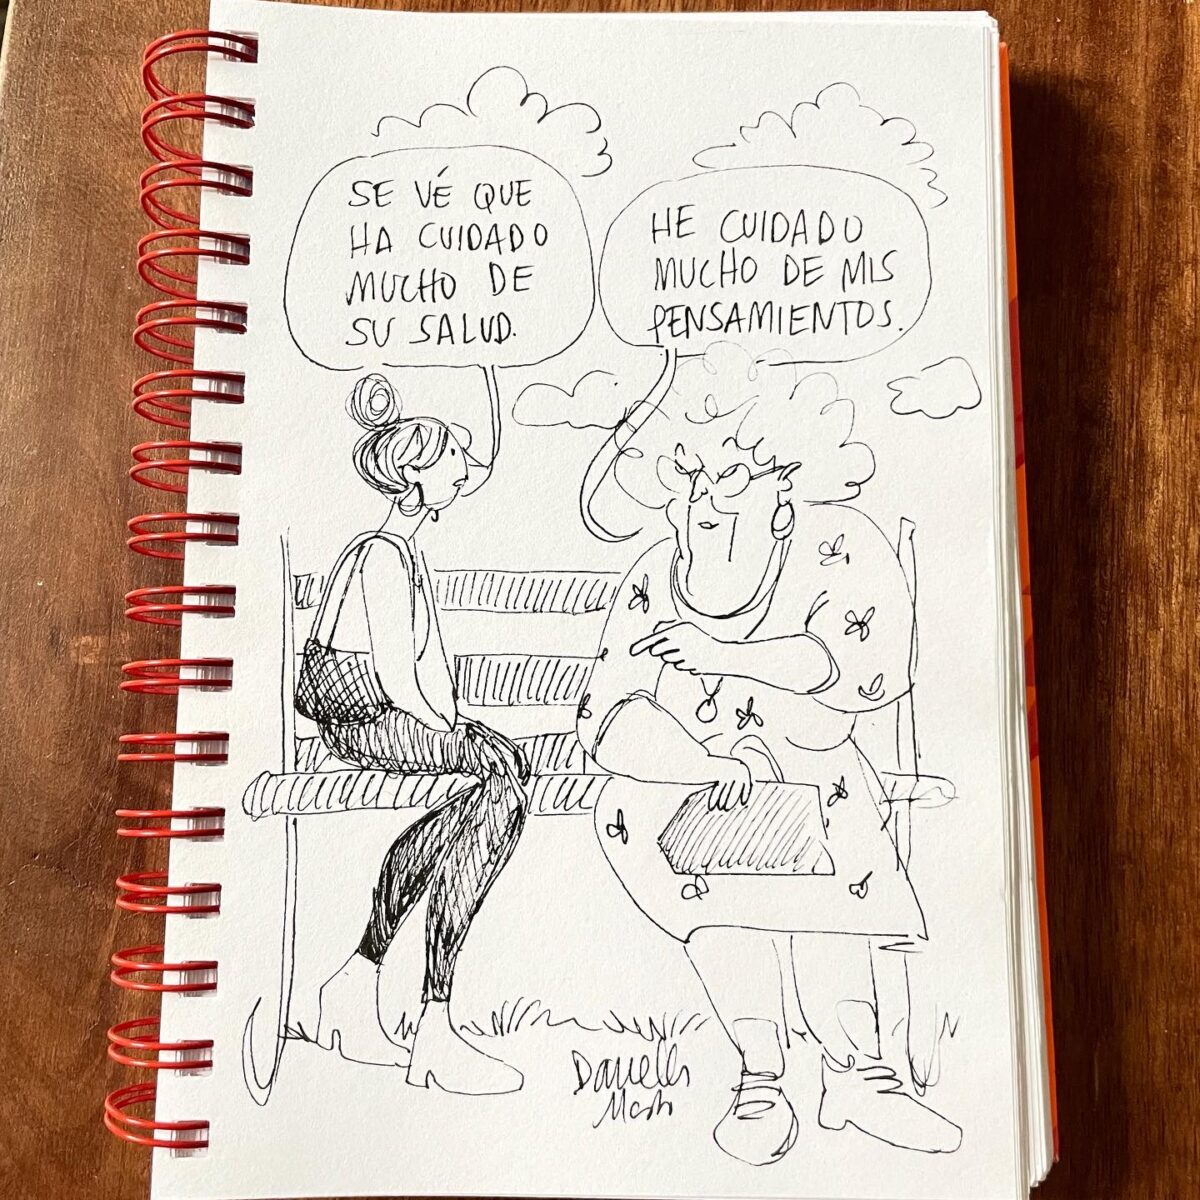 SE VÉ QUE
HA CUIDADO
MUCHO DE
SU SALUD.
HE CUIDADO
MUCHO DE MIS
PENSAMIENTOS.